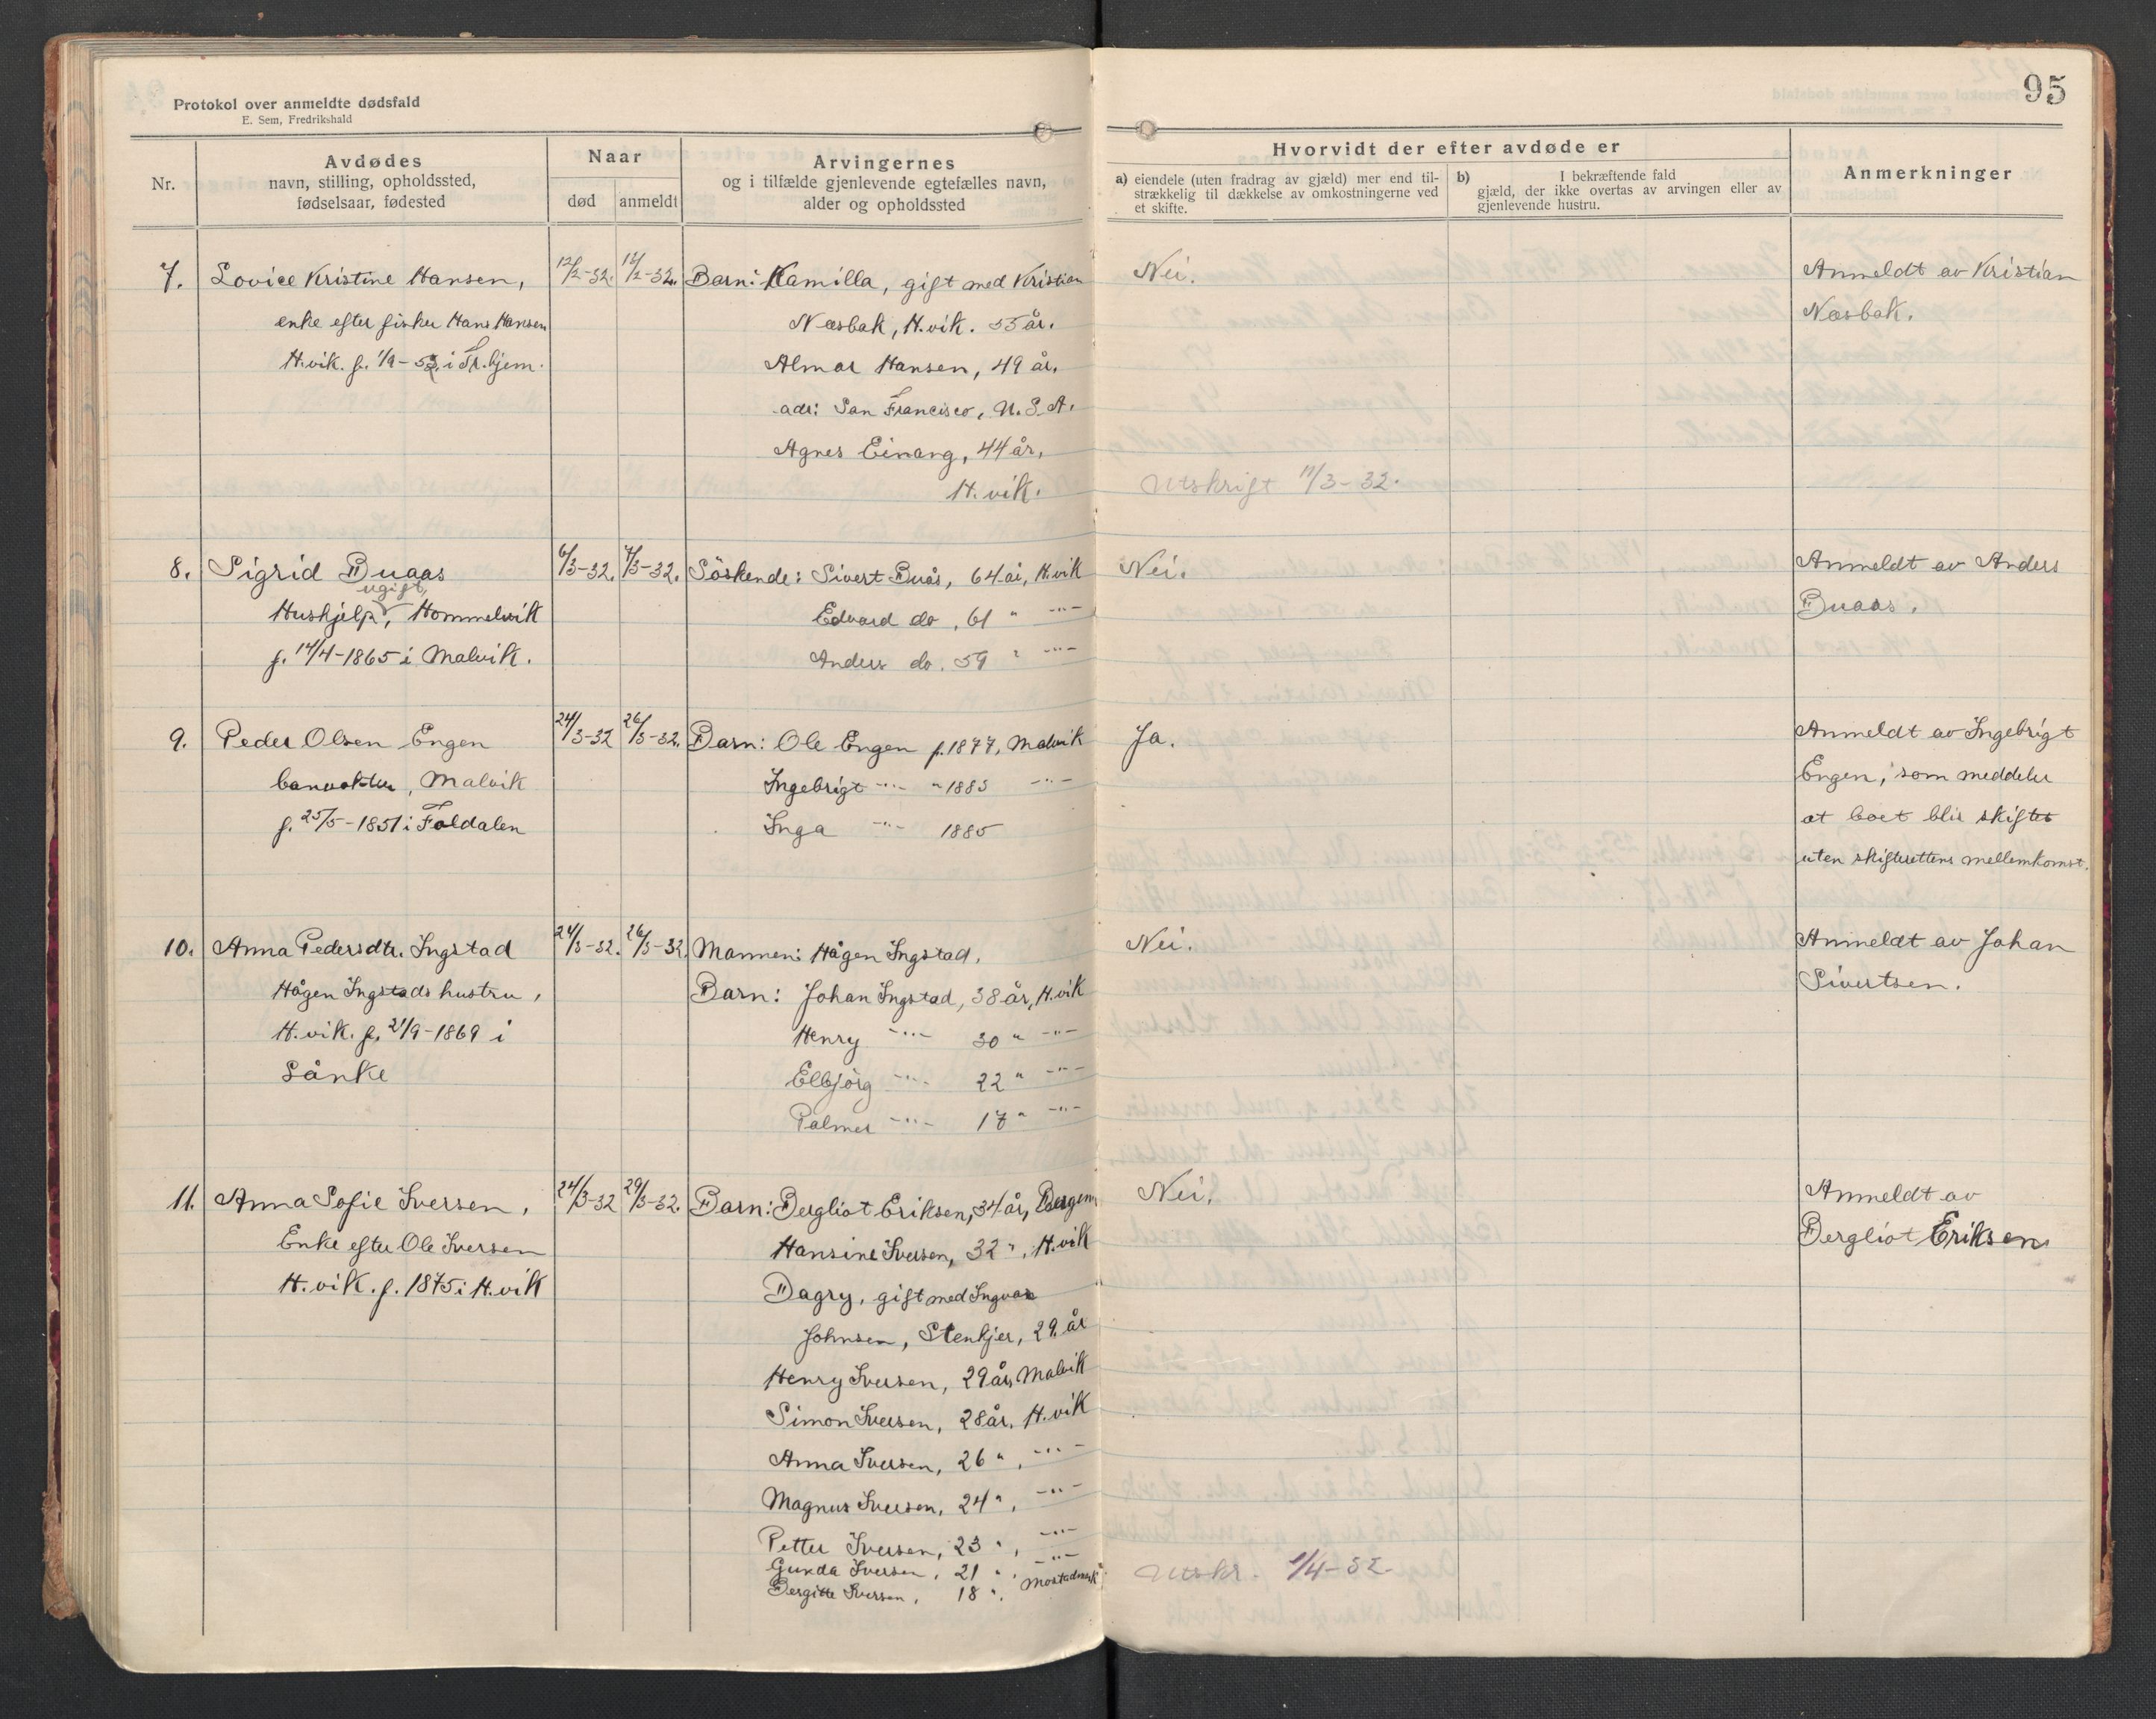 95
Protokol over anmeldte dødsfald
E. Sem, Fredrikshald
Nr.
Avdødes
navn, stilling, opholdssted,
fødselsaar, fødested
Naar
død
anmeldt
Arvingernes
og i tilfælde gjenlevende egtefælles navn,
alder og opholdssted
Hvorvidt der efter avdøde er
a) eiendele (uten fradrag av gjæld) mer end til-
strækkelig til dækkelse av omkostningerne ved
et skifte.
b) I bekræftende fald
gjæld, der ikke overtas av arvingen eller av
gjenlevende hustru.
Anmerkninger
7. Lovice Kristine Hansen,
enke efter fisker Hans Hansen
H.vik. f. 1/9-53 i Tr.hjem.
12/2-32. /2-32.
Barn: Kamilla, gift med Kristian
Næsbak, H.vik. 55 år.
Almar Hansen, 49 år.
adr: San Francisco, U.S.A.
Agnes Einang, 44 år,
H.vik.
Nei.
Utskrift 11/3-32.
Anmeldt av Kristian
Næsbak.
8. Sigrid Buaas
ugift,
Hushjelp, Hommelvik
f. 14/4-1865 i Malvik.
6/3-32. 7/3-32.
Söskende: Sivert Buås, 64 år, H.vik
Edvard do, 61 " -"-
Anders do. 59 " -"-
Nei.
Anmeldt av Anders
Buaas.
9. Peder Olsen Engen
banvokter, Malvik
f. 25/5-1851 i Foldalen
24/3-32 26/3-32.
Barn: Ole Engen f. 1877, Malvik
Ingebrigt -"- " 1883 -"-
Inga -"- 1885
Ja.
Anmeldt av Ingebrigt
Engen, som meddeler
at boet blir skiftet
uten skifterettens mellemkomst.
10. Anna Pedersdtr. Ingstad
Hågen Ingstads hustru,
H.vik. f. 21/9-1869 i
Sånke
24/3-32. 26/3-32
Mannen: Hågen Ingstad.
Barn: Johan Ingstad, 38 år, H.vik
Henry -"- 30 " -"-
Elbjörg -"- 22 " -"-
Palmer -"- 17 " -"-
Nei.
Anmeldt av Johan
Sivertsen.
11. Anna Sofie Iversen,
Enke efter Ole Iversen
H.vik. f. 1875 i H.vik
24/3-32 29/3-32.
Barn: Bergliot Eriksen, 34 år, Bergen
Hansine Iversen, 32 ", H.vik
Dagry, gift med Ingvar
Johnsen, Stenkjer, 29 år
Henry Iversen, 29 år, Malvik
Simon Iversen, 28 år. H.vik
Anna Iversen, 26 ", -"-
Magnus Iversen, 24 ", -"-
Petter Iversen, 23 ", -"-
Gunda Iversen, 21 ", -"-
Bergitte Iversen, 18 ", Mostadmark
Nei.
Utskr. 1/4-32
Anmeldt av
Bergliot Eriksen